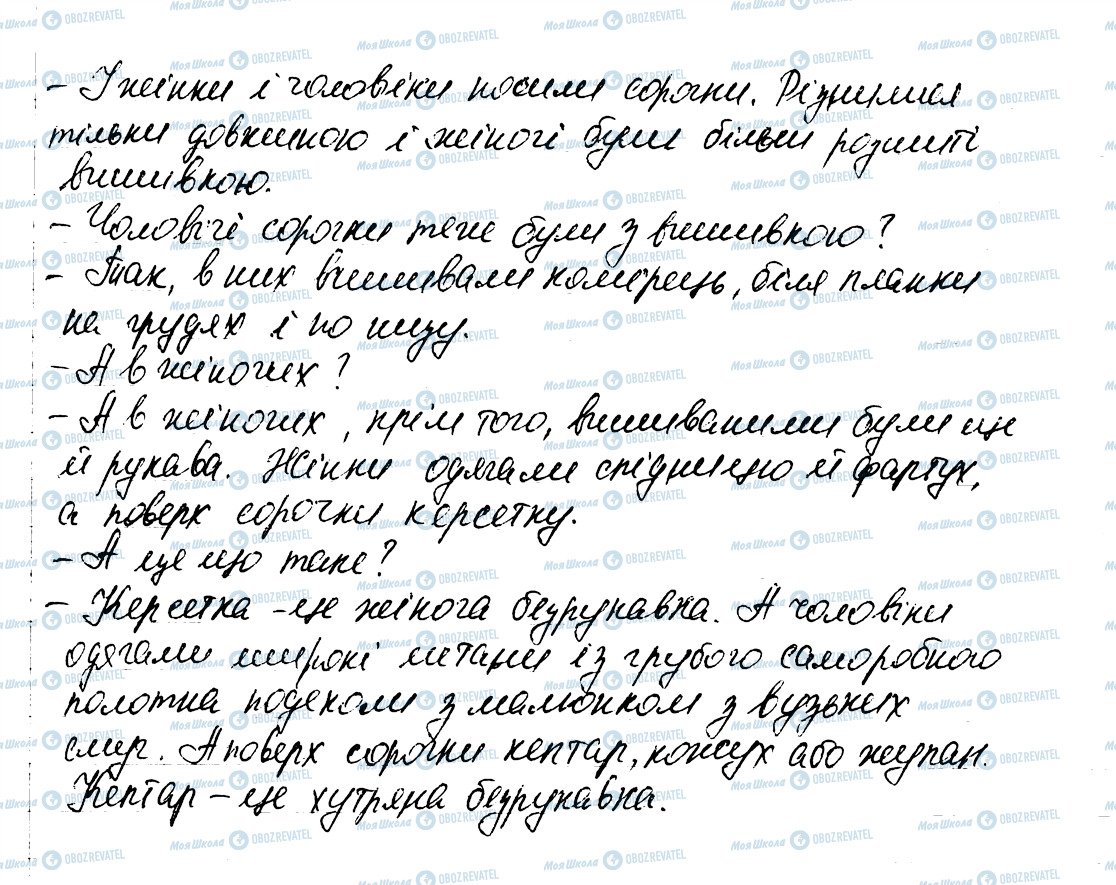 – І жінки і чоловіки носили сорочки. Різнилися
тільки довжиною і жіночі були більш розшиті
вишивкою.
– Чоловічі сорочки теж були з вишивкою?
– Так, в них вишивали комірець, біля планки
на грудях і по низу.
– А в жіночих?
– А в жіночих, крім того, вишиваними були ще
й рукава. Жінки одягали спідницю й фартух,
а поверх сорочки керсетку.
– А це що таке?
– Керсетка – це жіноча безрукавка. А чоловіки
одягали широкі штани із грубого саморобного
полотна подеколи з малюнком з вузьких
смуг. А поверх сорочки кептар, кожух або жупан.
Кептар – це хутряна безрукавка.